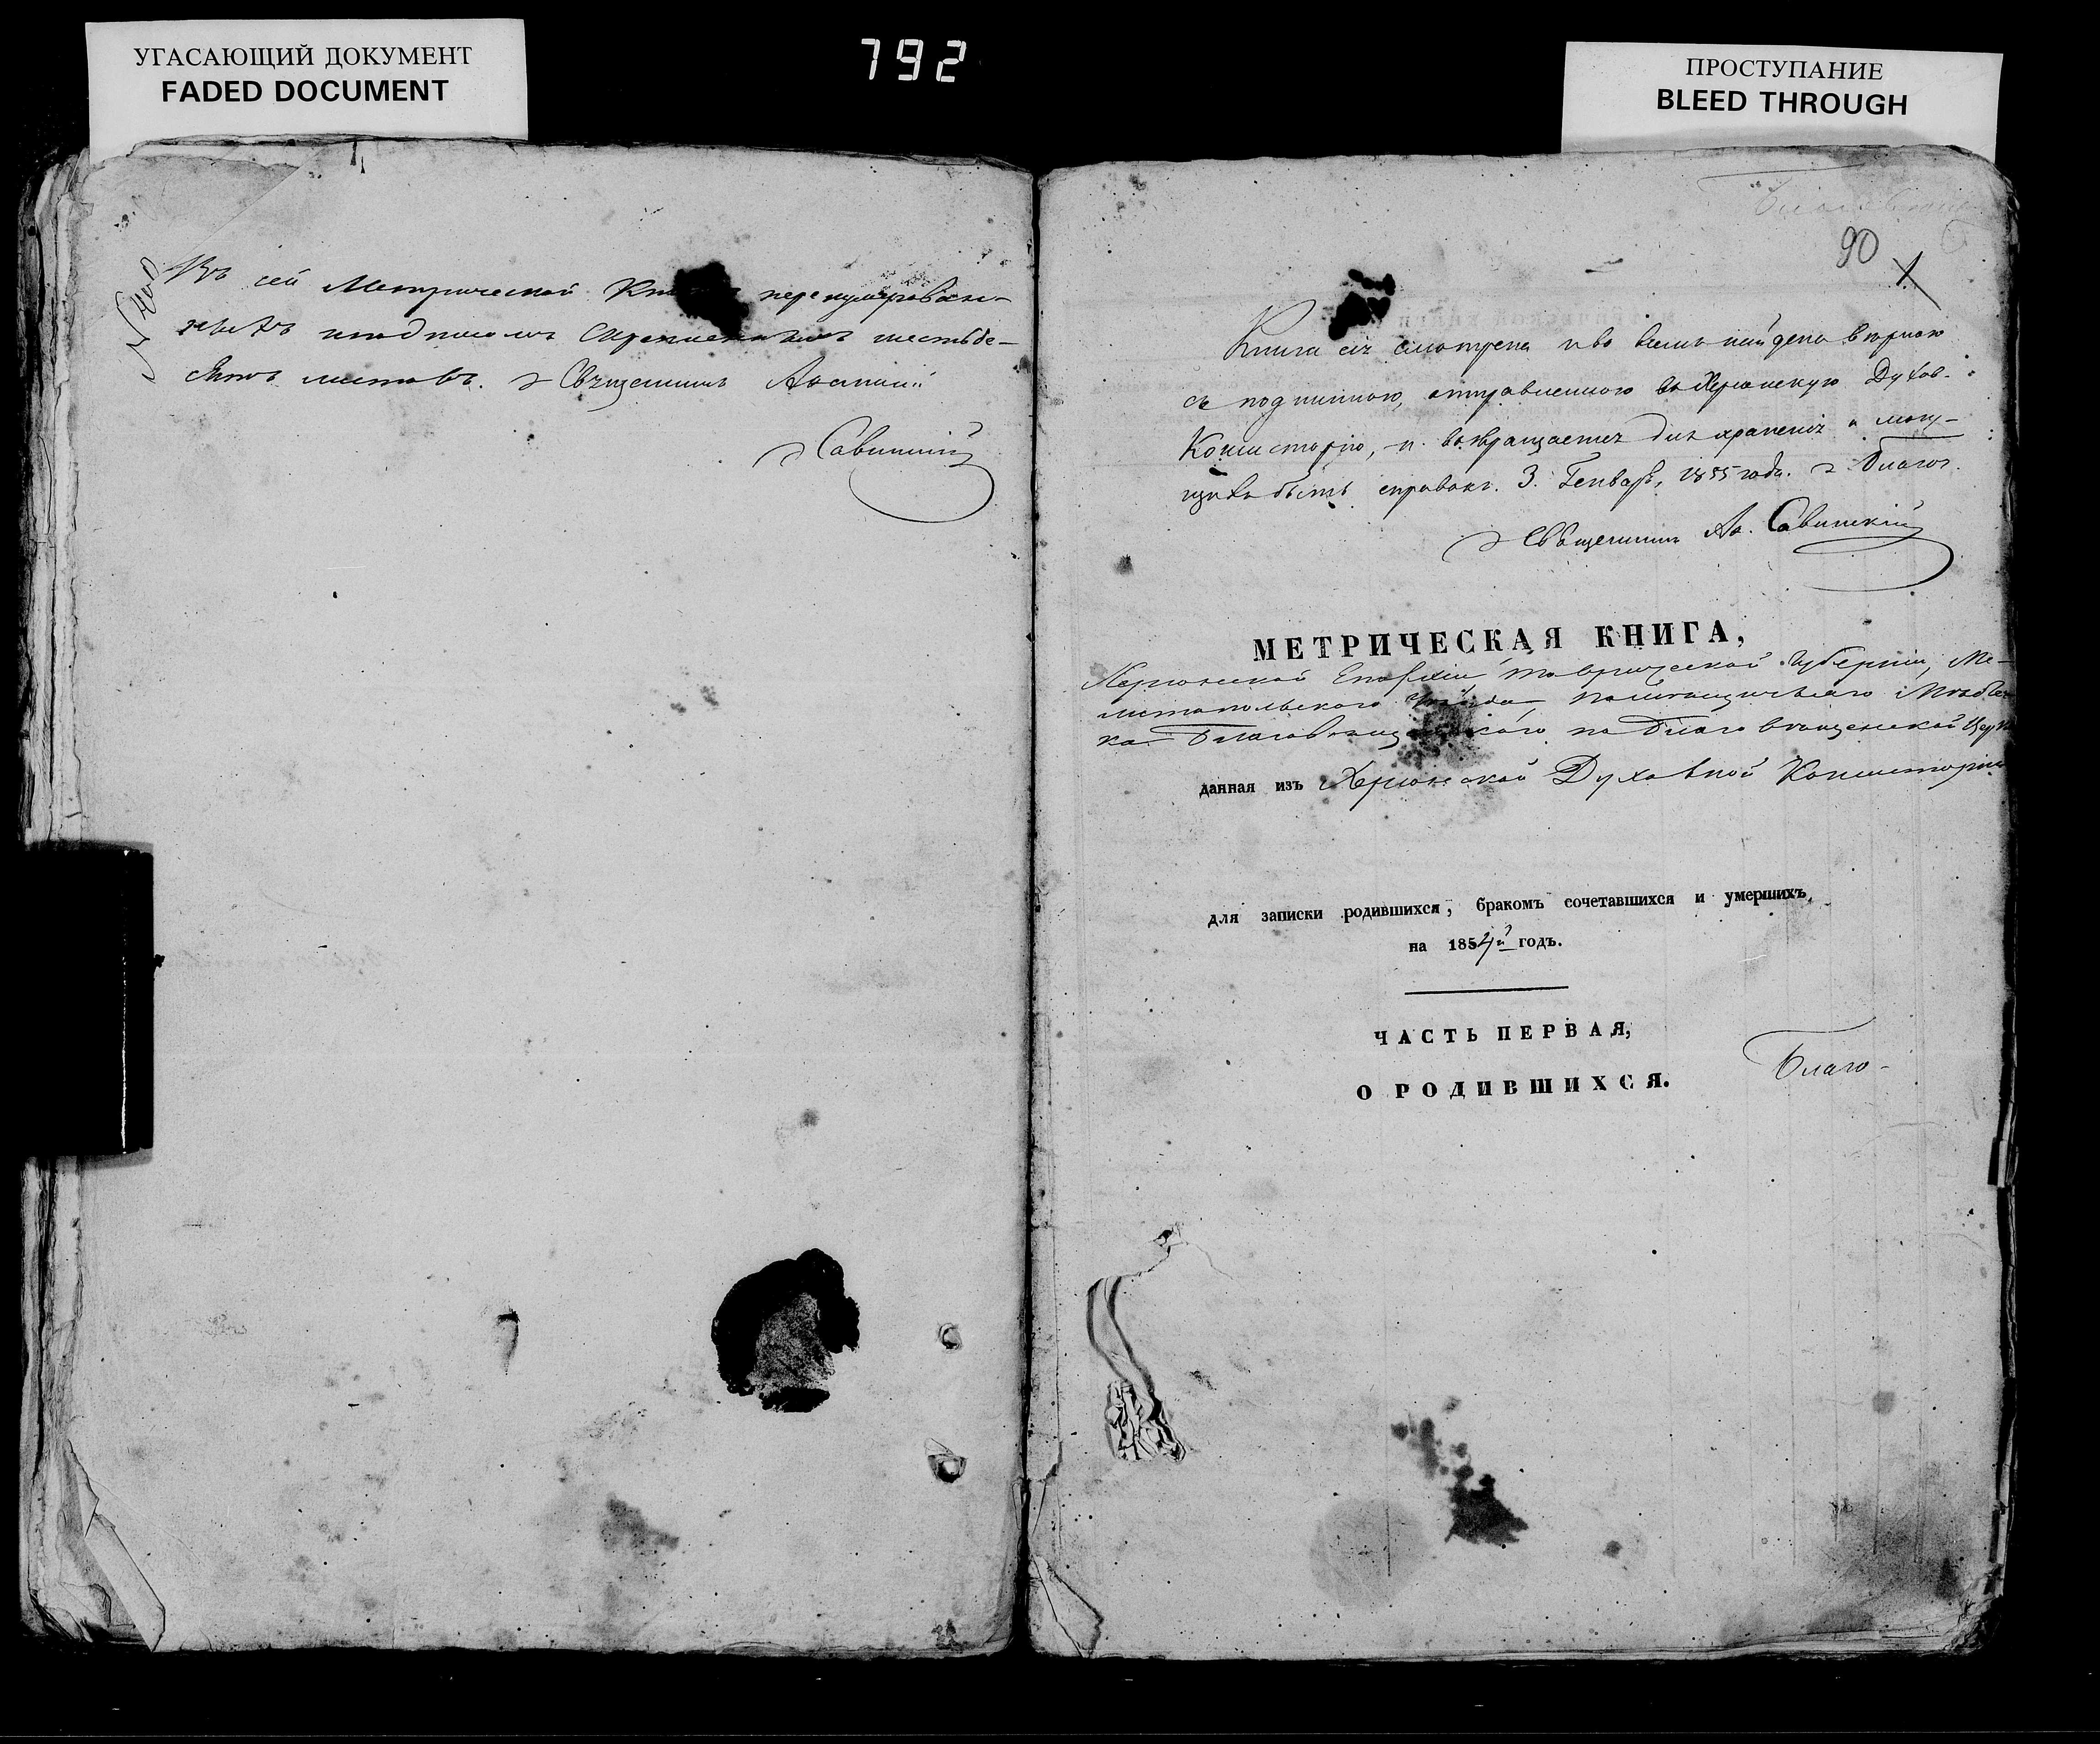 УГАСАЮЩИЙ ДОКУМЕНТ
FADED DOCUMENT
792
ПРОСТУПАНИЕ
BLEED THROUGH
Въ сей Метрической перенумерован-
шестьде-
сятъ листовъ. Священникъ
Савинскій
90
1
Книга сія смотрена и во всемъ найдена вѣрною
съ подлинною, отправленною въ Херсонскую Духов.
Консисторію, и возвращается для храненія и могу-
щихъ быть справокъ. 3. Генваря, 1855 года. Благоч.
Священникъ Ав. Савинскій
МЕТРИЧЕСКАЯ КНИГА,
Херсонской Епархіи, Таврической Губерніи, Ме-
литопольского уѣзда,
ка Благовѣщенского по Благовѣщенской
данная изъ Херсонской Духовной Консисторіи
для записки родившихся, бракомъ сочетавшихся и умершихъ,
на 1854й годъ.
ЧАСТЬ ПЕРВАЯ,
О РОДИВШИХСЯ.
Благо-